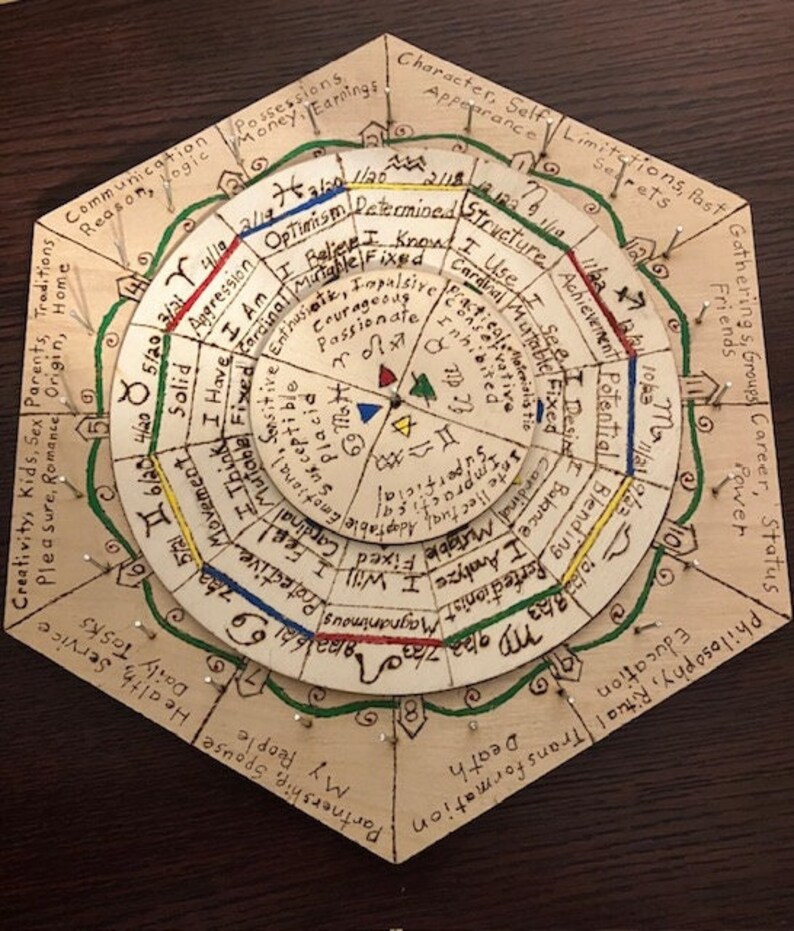 Character, Self,
Appearance
Limitations, Past
Secrets
Gatherings, Groups
Friends
Career, Status
Power
Philosophy, Ritual
Education
Transformation
Death
Partnership, Spouse
My People
Health, Service
Daily Tasks
Creativity, Kids, Sex
Pleasure, Romance
Parents, Traditions
Origin, Home
Communication
Reason, Logic
Possessions,
Money, Earnings
1
12
11
10
9
8
7
6
5
4
3
2
♒
1/20 2/18
Determined
I Know
Fixed
♑
1/19
Structure
I Use
Cardinal
♐
11/22
Achievement
I See
Mutable
♏
10/23 11/21
Potential
I Desire
Fixed
♎
9/23
Blending
I Balance
Cardinal
♍
8/23 9/22
Perfectionist
I Analyze
Mutable
♌
7/23 8/22
Magnanimous
I Will
Fixed
♋
6/21 7/22
Protective
I Feel
Cardinal
♊
5/21 6/20
Movement
I Think
Mutable
♉
4/20 5/20
Solid
I Have
Fixed
♈
3/21 4/19
Aggression
I Am
Cardinal
♓
2/19 3/20
Optimism
I Believe
Mutable
Enthusiastic, Impulsive
Courageous
Passionate
♈ ♌ ♐
Practical, Materialistic
Conservative
Inhibited
♉ ♍ ♑
Intellectual, Adaptable
Impractical
Superficial
♊ ♎ ♒
Emotional, Sensitive
Susceptible
Placid
♋ ♏ ♓